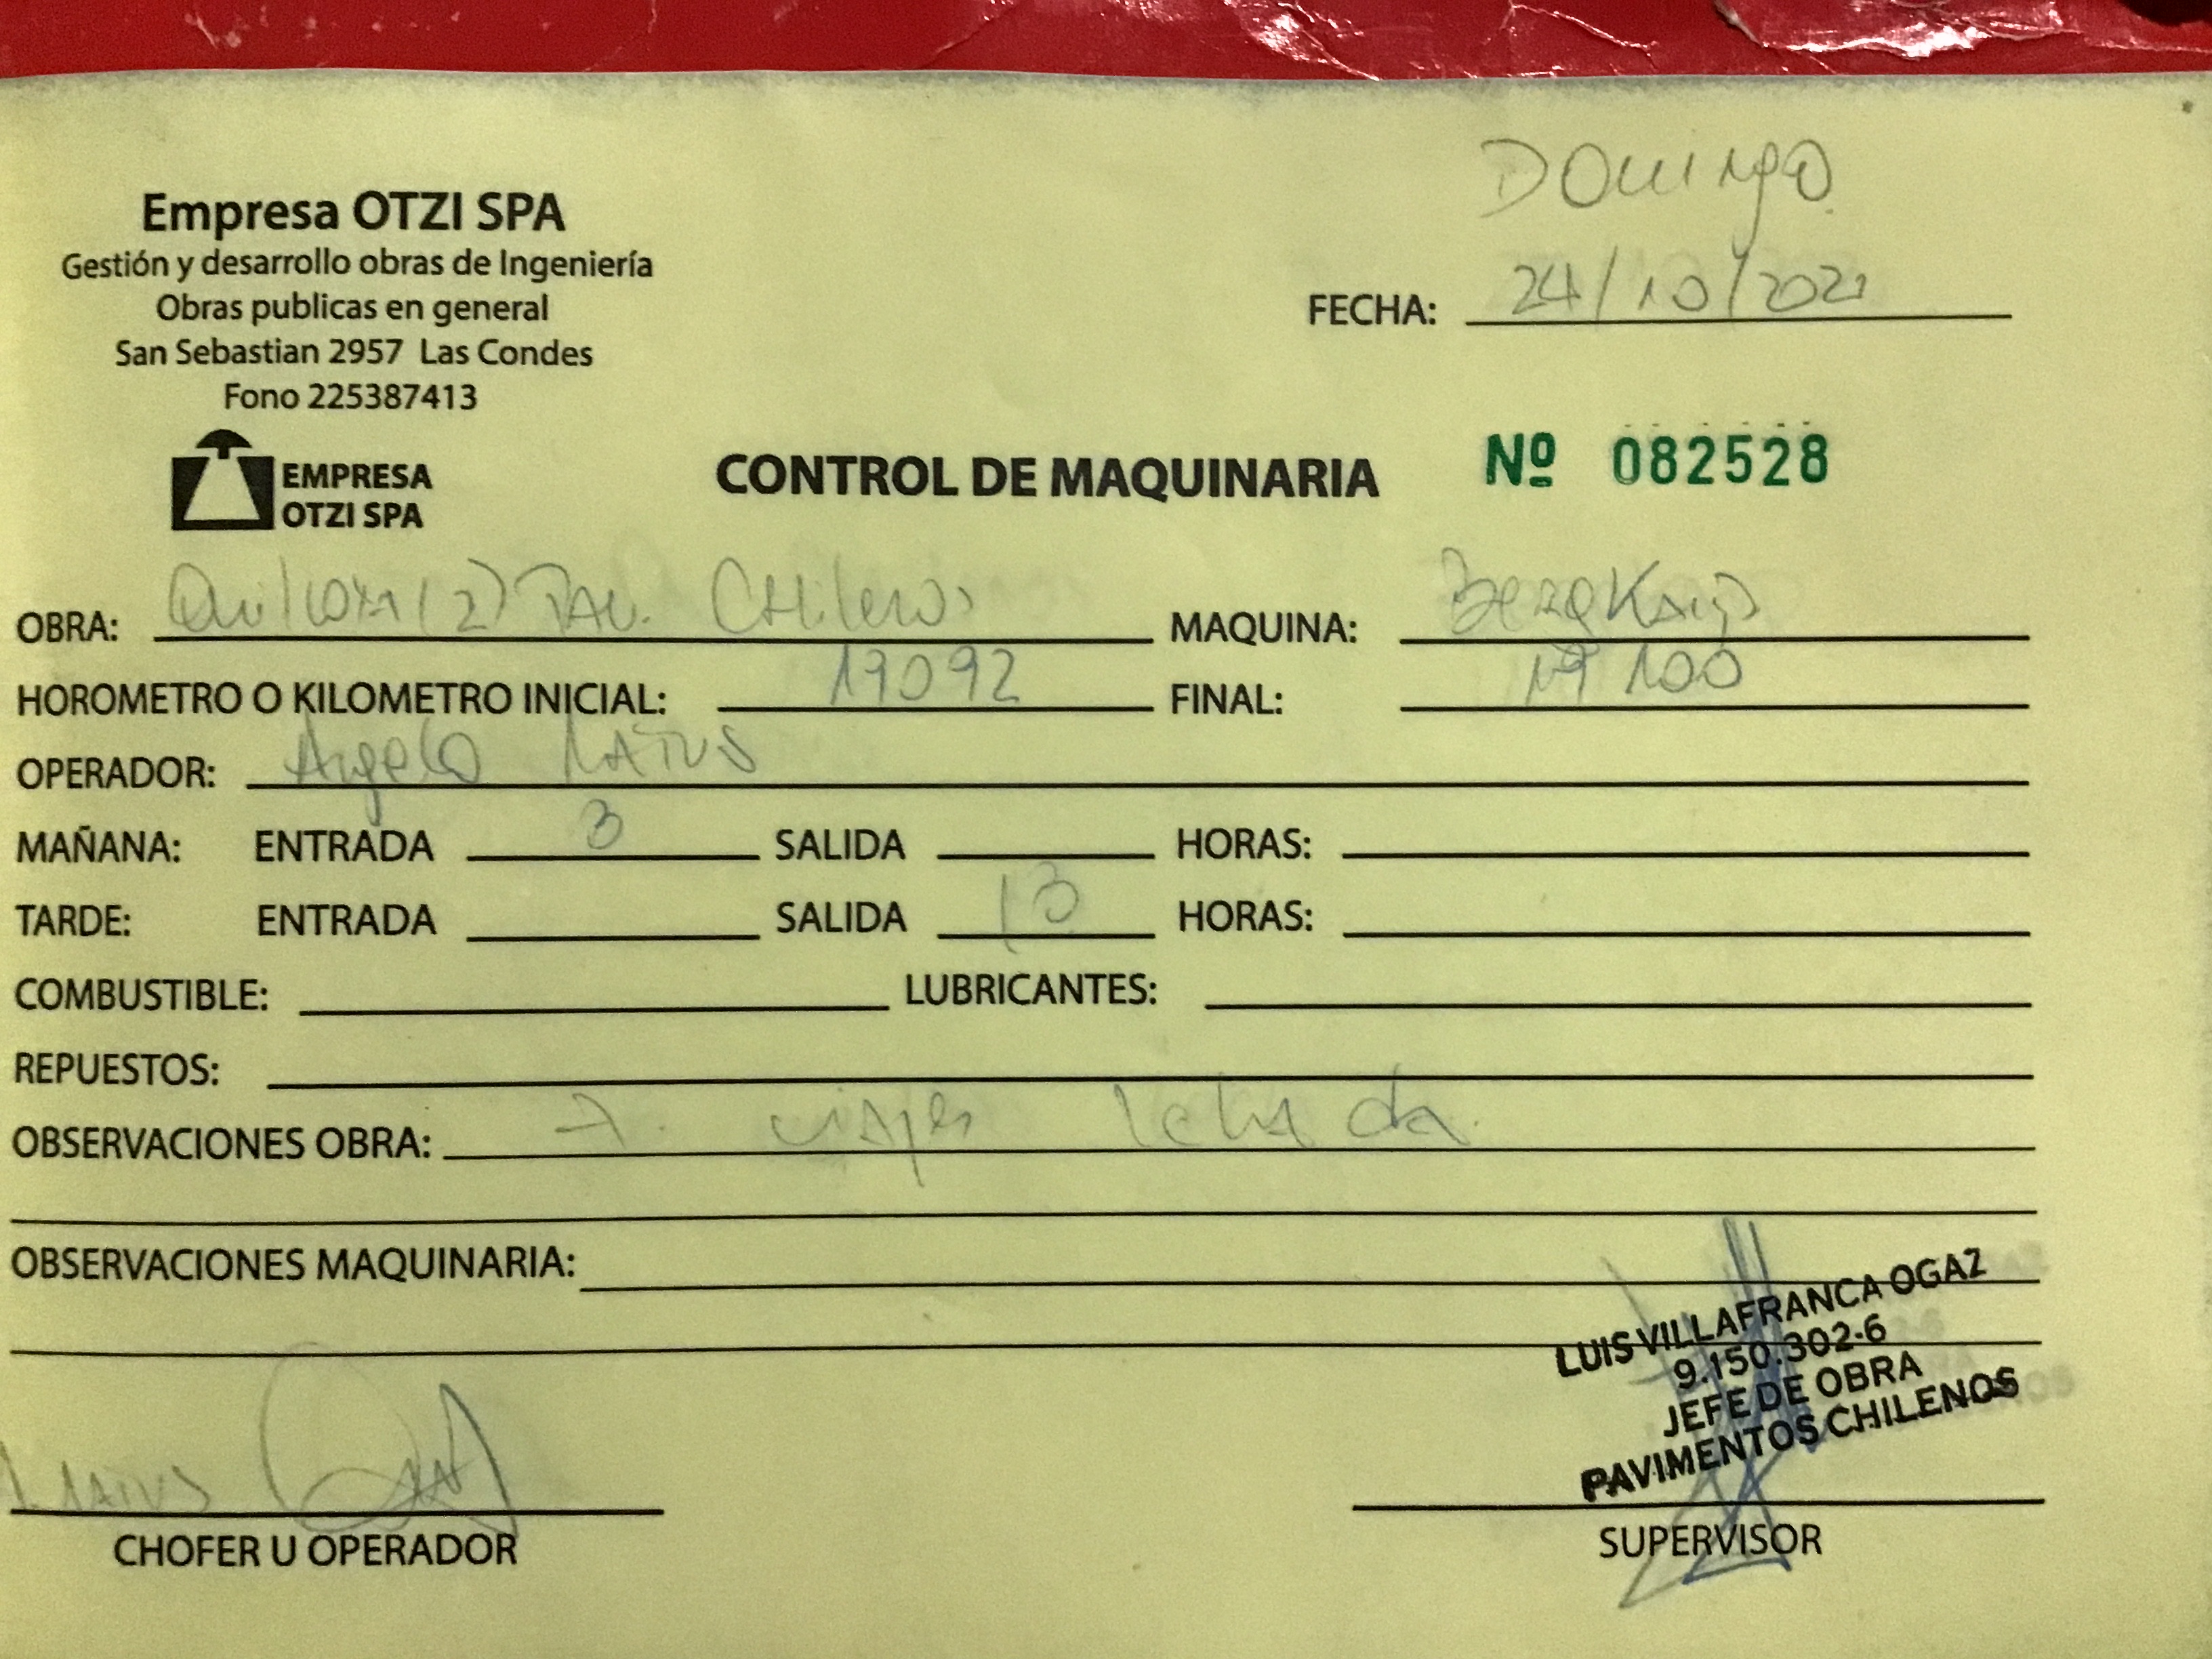 Domingo
Empresa OTZI SPA
Gestión y desarrollo obras de Ingeniería
Obras publicas en general
San Sebastian 2957 Las Condes
Fono 225387413
FECHA: 24/10/2021
EMPRESA
OTZI SPA
CONTROL DE MAQUINARIA Nº 082528
OBRA: (2) PAV. CHilenos MAQUINA:
HOROMETRO O KILOMETRO INICIAL: 19092 FINAL: 19100
OPERADOR: Angelo MATUS
MAÑANA: ENTRADA SALIDA HORAS:
TARDE: ENTRADA SALIDA 13 HORAS:
COMBUSTIBLE: LUBRICANTES:
REPUESTOS:
OBSERVACIONES OBRA: 7. viajes
OBSERVACIONES MAQUINARIA:
LUIS VILLAFRANCA OGAZ
9.150.302-6
JEFE DE OBRA
PAVIMENTOS CHILENOS
MATUS
CHOFER U OPERADOR
SUPERVISOR